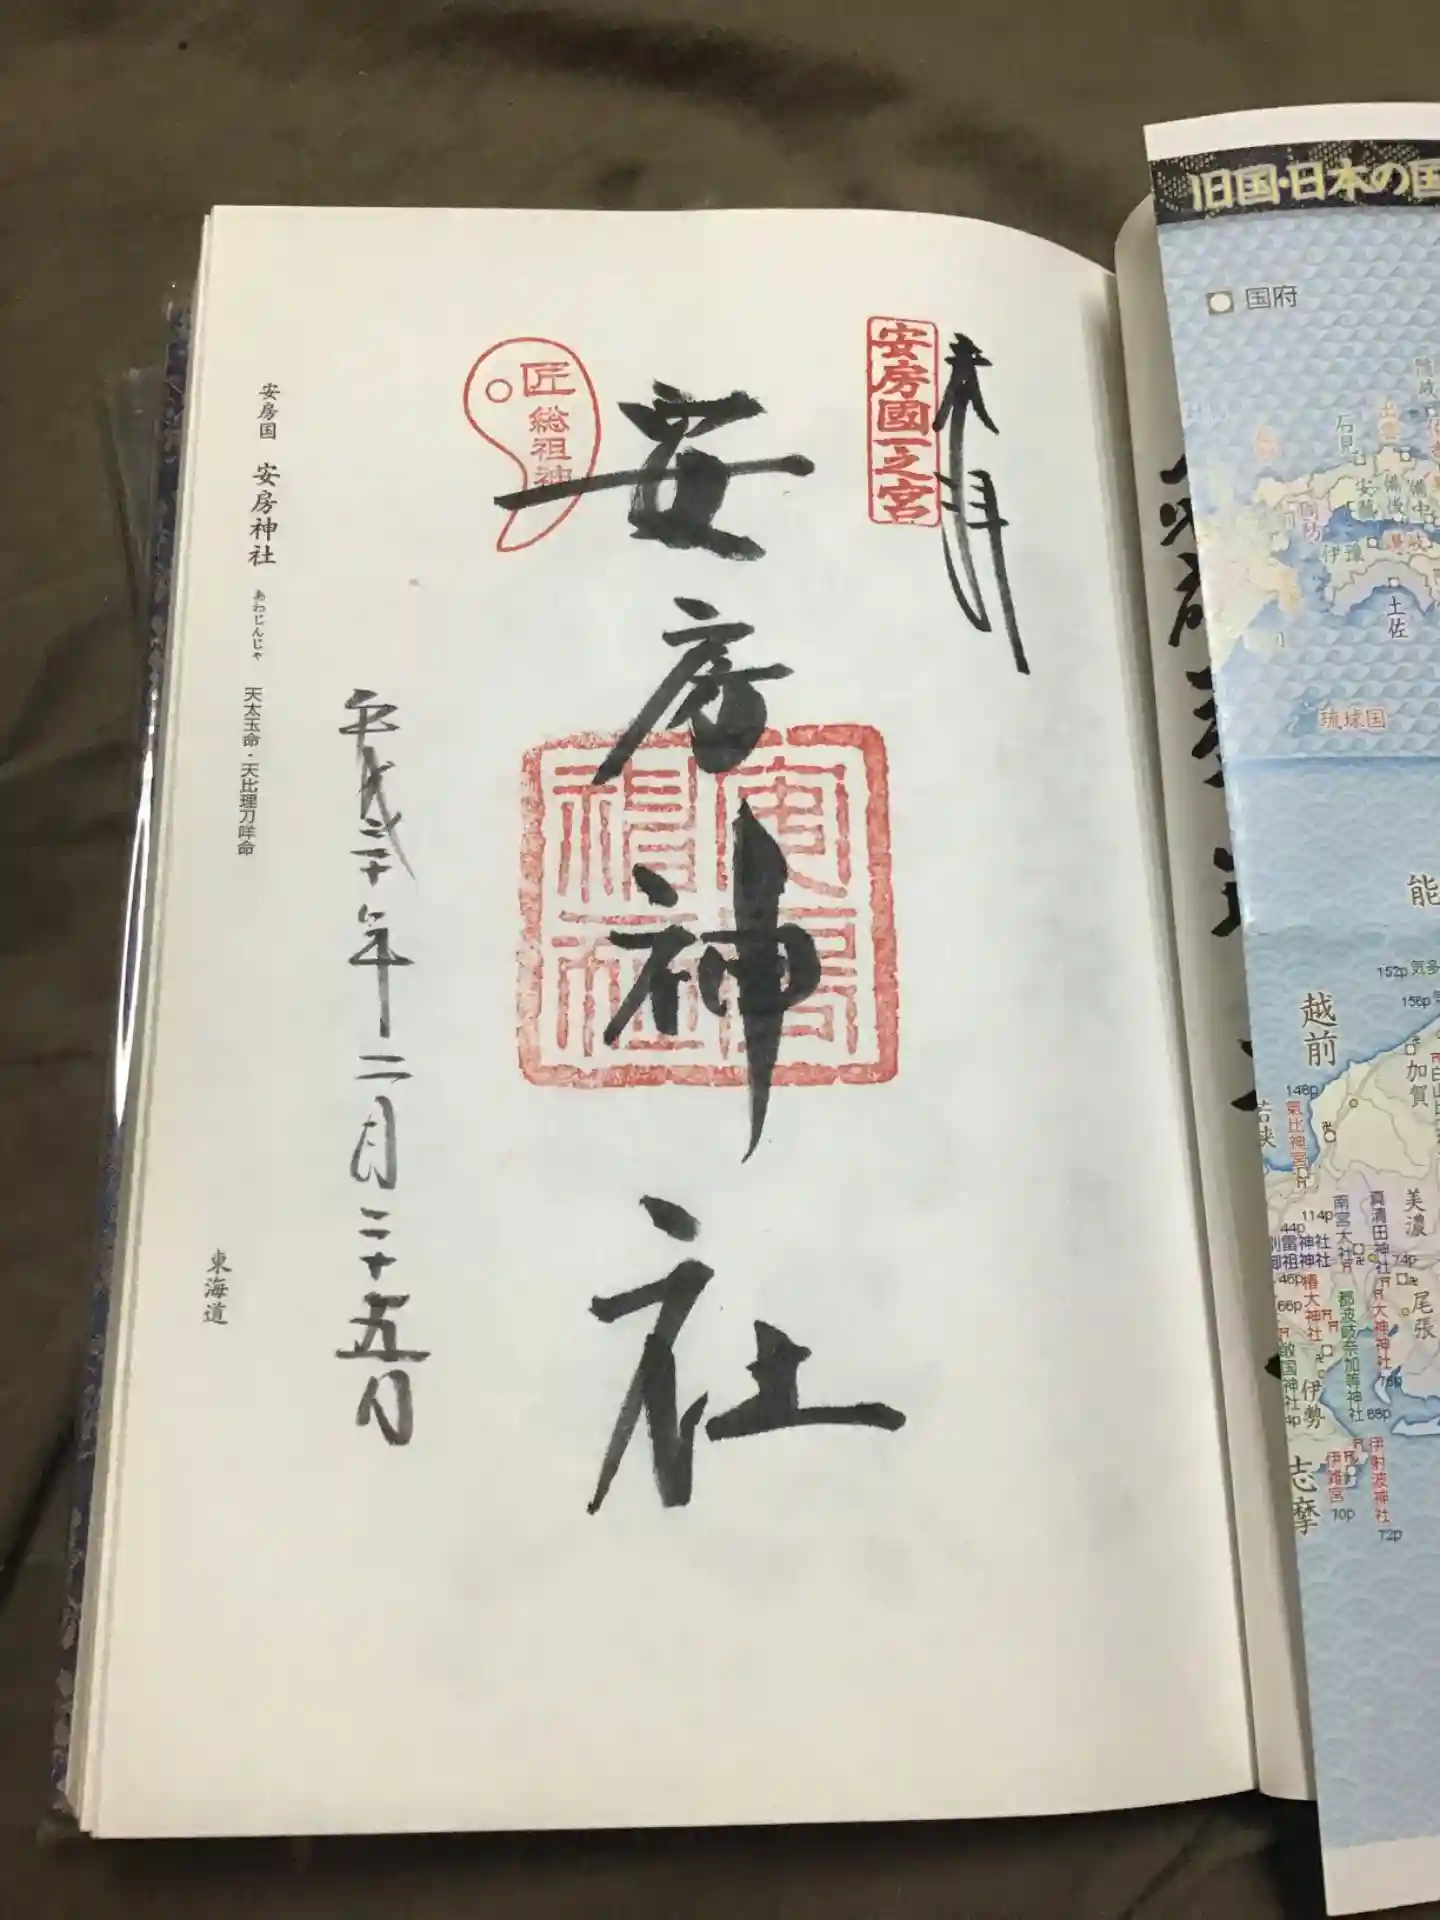 奉拝
安房國一之宮
安房神社
安房神社
匠
総祖神
平成三十年二月二十五日
安房国 安房神社 あわじんじゃ 天太玉命・天比理刀咩命
東海道
旧国・日本の国
国府
石見
出雲
備後
備中
伊豫
讃岐
土佐
琉球国
能
152p 気多
156p
越前
加賀
148p
氣比神宮
若狭
美濃
南宮大社
114p
真清田神社
74p
44p
46p
66p
椿大神社
都波岐奈加等神社
68p
大神神社
76p
尾張
敢国神社
伊勢
志摩
伊雑宮
70p
伊射波神社
72p